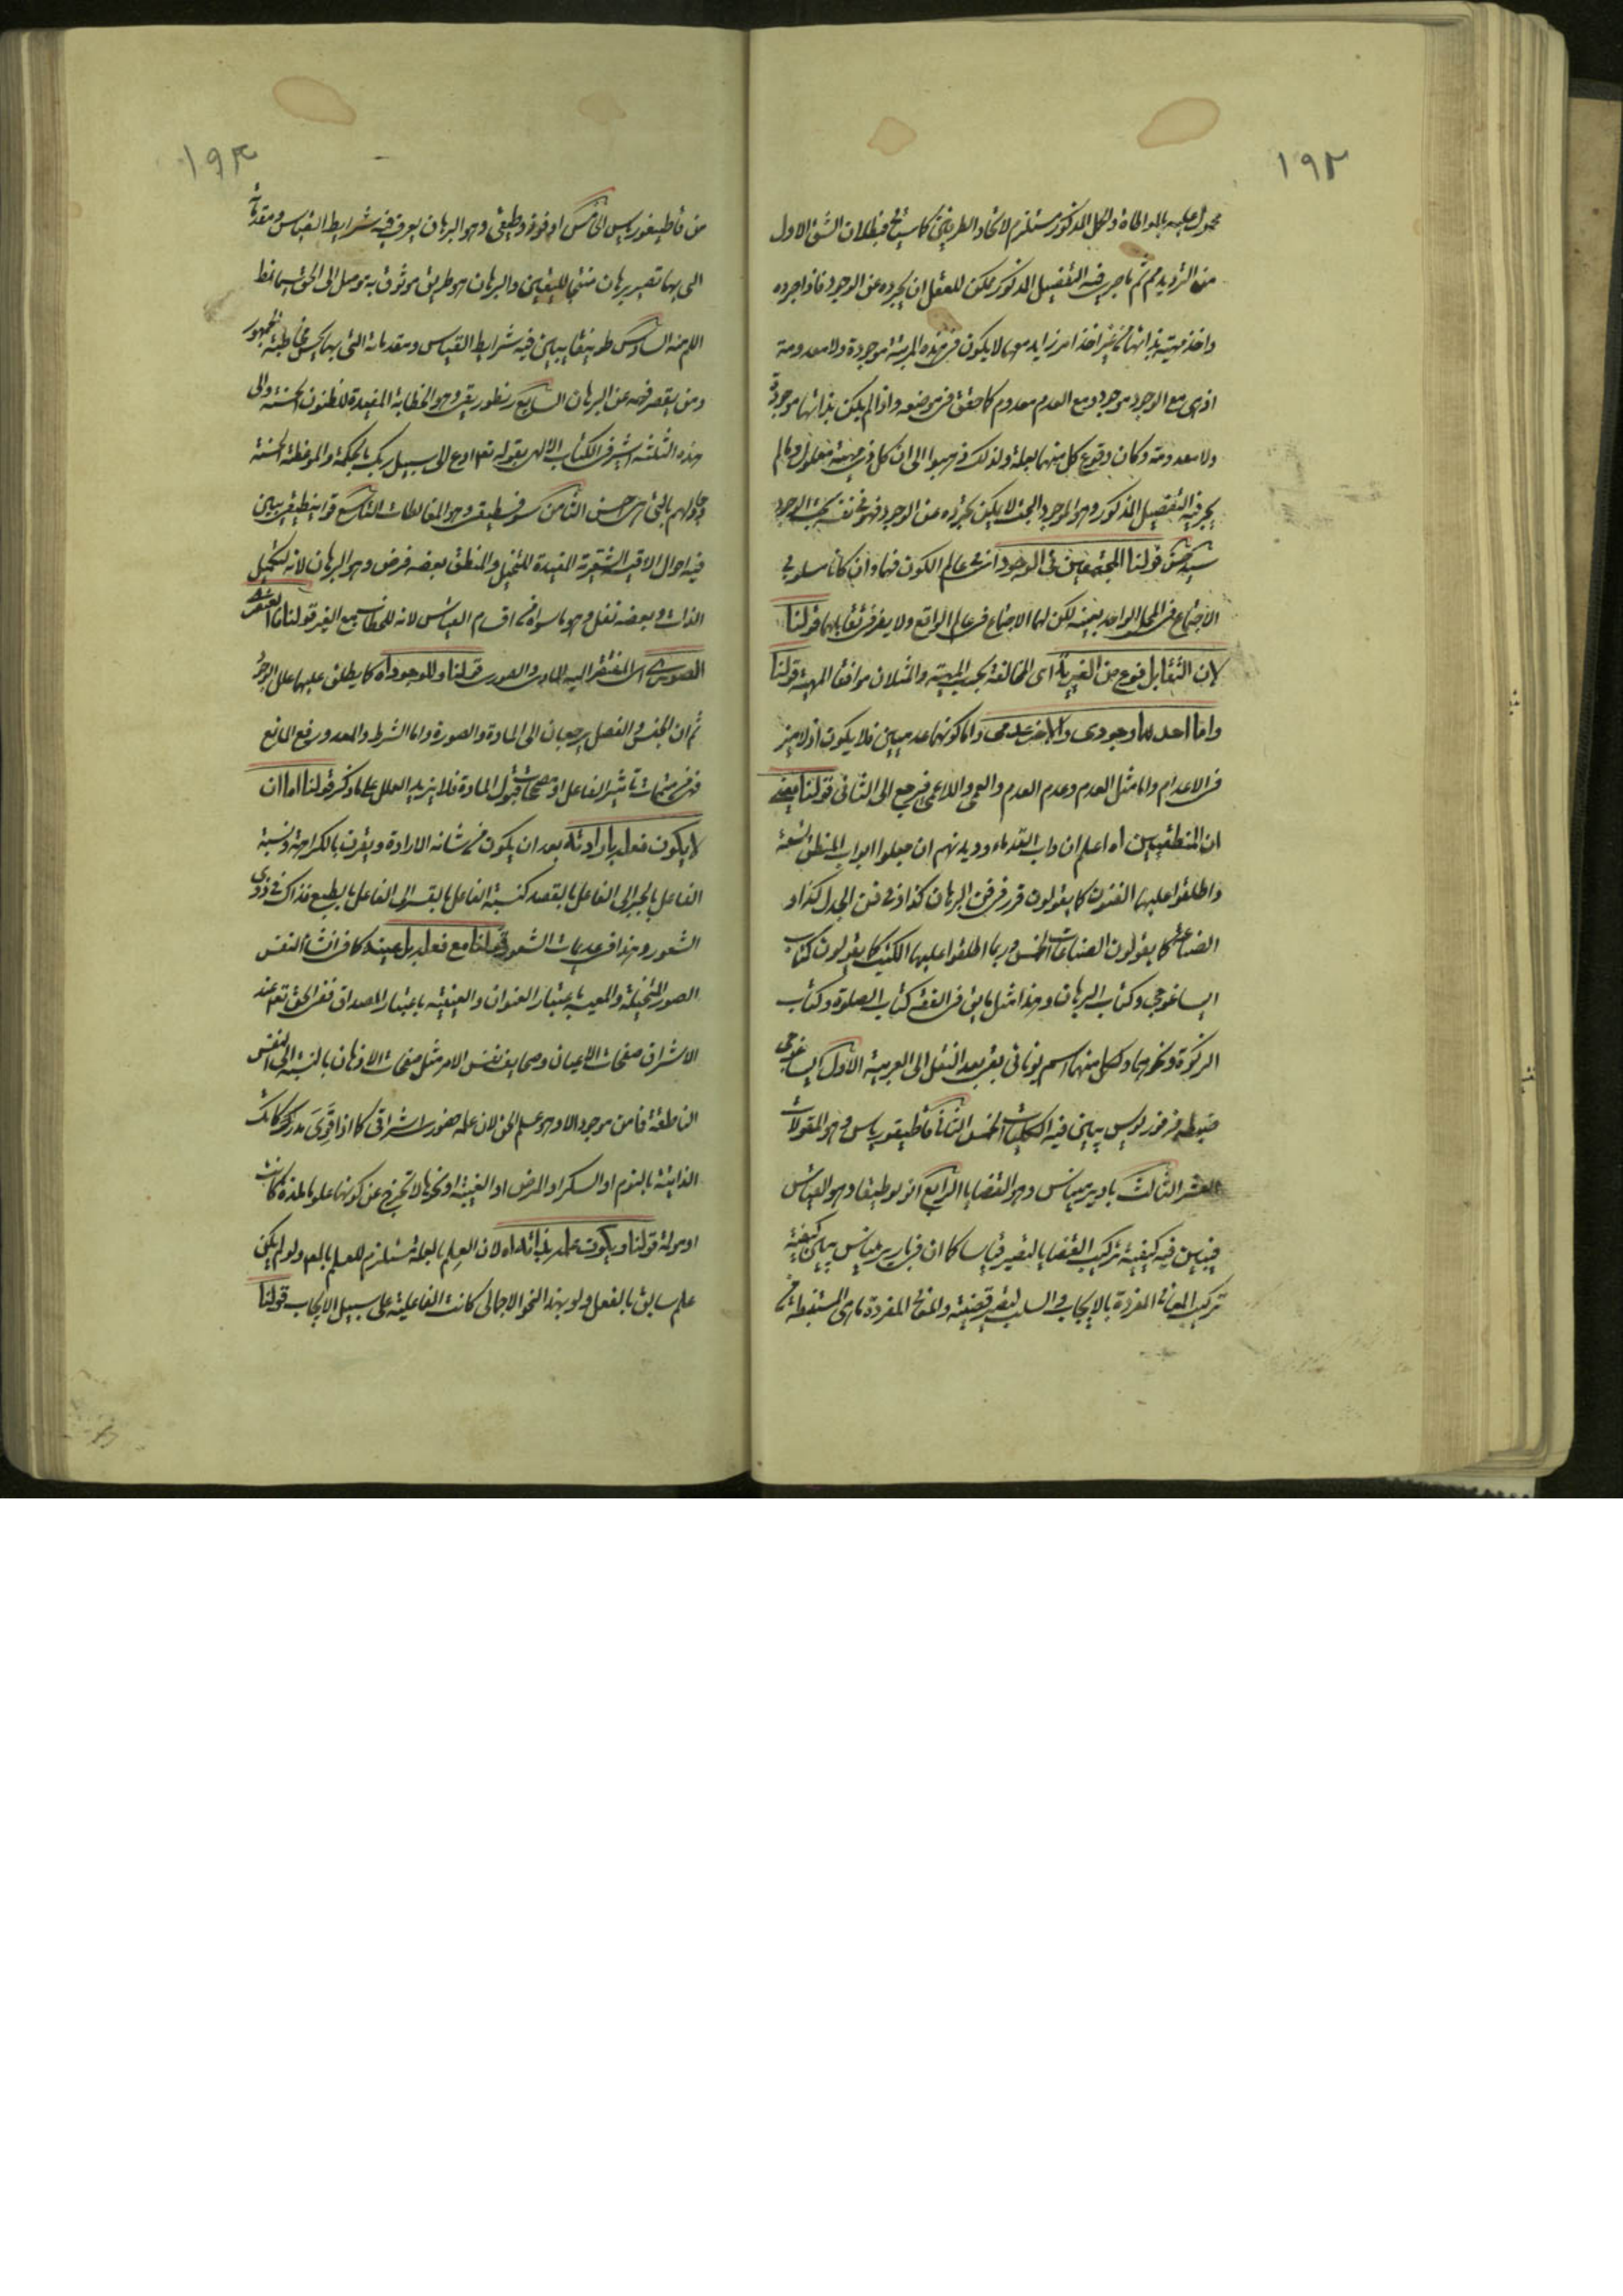 ١٩٢
محمولا عليه بالمواطاة ولكل المذكور مستلزم لاتحاد الطريقين كما سيتضح فبطلان الشق الاول
من الترديد مم ثم ما جرى فيه التفصيل المذكور يمكن للعقل ان يجرده عن الوجود فاذا جرده
واخذ مهيته بذاتها من غير اخذ امر زايد معها لا يكون فى هذه المرتبة موجودة ولا معدومة
اذ هى مع الوجود موجود ومع العدم معدوم كما حقق فى موضعه واذا لم يكن بذاتها موجودة
ولا معدومة وكان وقوع كل منهما بعلة ولذلك ذهبوا الى ان كل ذى مهية معلول وما لم
يجر فيه التفصيل المذكور وهو الموجود البحت لا يمكن تجرده عن الوجود فهو فى نفسه يجب الوجود
قولنا المجتمعين فى الوجود اى فى عالم الكون فهما وان كانا مسلوبى
الاجتماع فى المحل الواحد بعينه لكن لهما الاجتماع فى عالم الواقع ولا يضر فى تقابلهما قولنا
لان التقابل نوع من الغيرية اى المخالفة بحسب المهية والمثلان موافقا المهية قولنا
واما احدهما وجودى والاخر عدمى واما كونهما عدميين فلا يكون اذ لا ميز
فى الاعدام واما مثل العدم وعدم العدم والعمى واللاعمى فيرجع الى الثانى قولنا بعض
ان المنطقيين اه اعلم ان داب القدماء وديدنهم ان جعلوا ابواب المنطق تسعة
واطلقوا عليها الفنون كما يقولون قرر فى فن البرهان كذا وفى فن الجدل كذا و
الصناعة كما يقولون الصناعات الخمس وربما اطلقوا عليها الكتب كما يقولون كتاب
ايساغوجى وكتاب البرهان وهذا مثل ما يق فى الفقه كتاب الصلوة وكتاب
الزكوة ونحوهما ولكل منهما اسم يونانى بقى بعد النقل الى العربية الاول ايساغوجى
ضبطه فرفوريوس يبين فيه الكليات الخمس الثانى قاطيغورياس وهو المقولات
العشر الثالث باريرميناس وهو القضايا الرابع انولوطيقا وهو القياس
فيبين فيه كيفية تركيب القضايا ليصير قياسا كما ان فى باريرميناس يبين كيفية
تركيب المعانى المفردة بالايجاب والسلب ليصير قضية والمعانى المفردة ماهى المستنبطة
١٩٣
من قاطيغورياس الخامس اوفوذوطيقى وهو البرهان يعرف فيه شرايط القياس ومقدماته
التى بها تصير برهان منتجا لليقين والبرهان هو طريق موثوق به موصل الى الحق سيما نمط
اللم منه السادس طوبيقا يبين فيه شرايط القياس ومقدماته التى بها يحسن مخاطبة الجمهور
ومن يقصر فهمه عن البرهان السابع ريطوريقى وهو الخطابة المفيدة للظنون الحسنة والى
هذه الثلثة اشير فى الكتاب الالهى بقوله تعه ادع الى سبيل ربك بالحكمة والموعظة الحسنة
وجادلهم بالتى هى احسن الثامن سوفسطيقى وهو المغالطات التاسع قوانيطيقى يبين
فيه احوال الاقيسة الشعرية المفيدة للتخيل والمنطق بعضه فرض وهو البرهان لانه لتكميل
الذات وبعضه نفل وهو ما سواه من اقسام القياس لانه للخطاب مع الغير قولنا اما العنصرى
الصورى اى المفتقر اليه المادى والصورى قولنا وللوجود اه كما يطلق عليها علل الوجود
ثم ان الجنس والفصل يرجعان الى المادة والصورة واما الشرط والمعد ورفع المانع
فهى من متممات تاثير الفاعل او مصححات قبول المادة فلا يزيد العلل على ما ذكر قولنا اما ان
لا يكون فعله بارادته بعد ان يكون من شانه الارادة ويقرن بالكراهة ونسبة
الفاعل بالجبر الى الفاعل بالقصد كنسبة الفاعل بالقسر الى الفاعل بالطبع فذاك فى ذوى
الشعور وهذا فى عديمات الشعور قولنا مع فعله بل عينه كما فى انشاء النفس
الصور المتخيلة والمعية باعتبار العنوان والعينية باعتبار المصداق ففى الحق تعه عند
الاشراق صفحات الاعيان وصحايف نفس الامر مثل صفحات الاذهان بالنسبة الى النفس
الناطقة فما من موجود الا وهو علم الحق لان علمه حضورى اشراقى كما اذا قوى مدركك
الذاتية بالنوم او السكر او المرض او الغيبة او نحوها لا تخرج عن كونها علوما لذة كانت
او مولمة قولنا ويكون علمه بذاته اه لان العلم بالعلة مستلزم للعلم بالمعلول ولو لم يكن
علم سابق بالفعل ولو بهذا النحو الاجمالى كانت الفاعلية على سبيل الايجاب قولنا